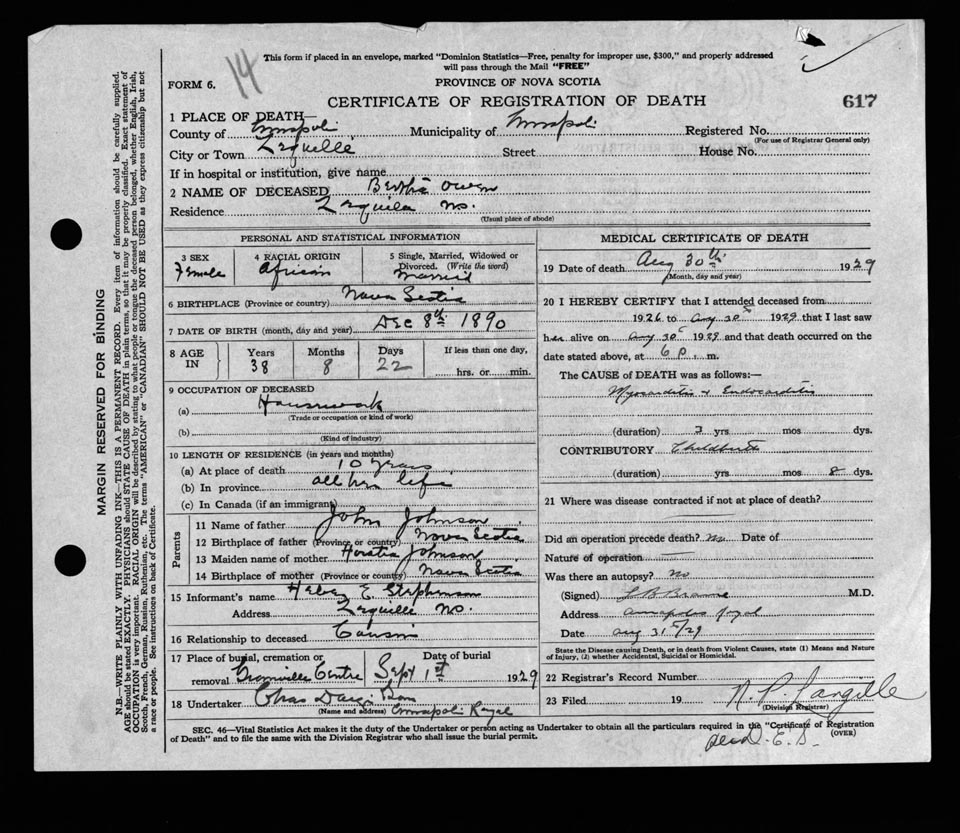 This form if placed in an envelope, marked "Dominion Statistics—Free, penalty for improper use, $300," and properly addressed
will pass through the Mail "FREE"
14
FORM 6.
PROVINCE OF NOVA SCOTIA
CERTIFICATE OF REGISTRATION OF DEATH
617
1 PLACE OF DEATH—
County of Annapolis Municipality of Annapolis Registered No.
(For use of Registrar General only)
City or Town Lequille Street House No.
If in hospital or institution, give name
2 NAME OF DECEASED Bertha Owen
Residence Lequille NS.
(Usual place of abode)
PERSONAL AND STATISTICAL INFORMATION
3 SEX
Female
4 RACIAL ORIGIN
African
5 Single, Married, Widowed or
Divorced. (Write the word)
Married
6 BIRTHPLACE (Province or country) Nova Scotia
7 DATE OF BIRTH (month, day and year) Dec 8th 1890
8 AGE IN
Years Months Days If less than one day,
38 8 22 hrs. or min.
9 OCCUPATION OF DECEASED
(a) Housework
(Trade or occupation or kind of work)
(b)
(Kind of industry)
10 LENGTH OF RESIDENCE (in years and months)
(a) At place of death 10 years
(b) In province all her life
(c) In Canada (if an immigrant)
Parents
11 Name of father John Johnson
12 Birthplace of father (Province or country) Nova Scotia
13 Maiden name of mother Johnson
14 Birthplace of mother (Province or country) Nova Scotia
15 Informant's name E Stephenson
Address Lequille NS.
16 Relationship to deceased Cousin
17 Place of burial, cremation or removal Centre
Date of burial
Sept 1st 1929
18 Undertaker Chas
(Name and address) Annapolis Royal
MEDICAL CERTIFICATE OF DEATH
19 Date of death Aug 30th 1929
(Month, day and year)
20 I HEREBY CERTIFY that I attended deceased from
1926 to Aug 30 1929 that I last saw
her alive on Aug 30 1929 and that death occurred on the
date stated above, at 6 P. m.
The CAUSE of DEATH was as follows:—
Myocarditis & Endocarditis
(duration) 3 yrs mos dys.
CONTRIBUTORY Childbirth
(duration) yrs mos 8 dys.
21 Where was disease contracted if not at place of death?
Did an operation precede death? No Date of
Nature of operation —
Was there an autopsy? No
(Signed) L B Braine M.D.
Address Annapolis Royal
Date Aug 31st/29
State the Disease causing Death, or in death from Violent Causes, state (1) Means and Nature
of Injury, (2) whether Accidental, Suicidal or Homicidal.
22 Registrar's Record Number
23 Filed 19 Langille
(Division Registrar)
SEC. 46—Vital Statistics Act makes it the duty of the Undertaker or person acting as Undertaker to obtain all the particulars required in the "Certificate of Registration
of Death" and to file the same with the Division Registrar who shall issue the burial permit.
(OVER)
MARGIN RESERVED FOR BINDING
N.B.—WRITE PLAINLY WITH UNFADING INK—THIS IS A PERMANENT RECORD. Every item of information should be carefully supplied.
AGE should be stated EXACTLY. PHYSICIANS should STATE CAUSE OF DEATH in plain terms, so that it may be properly classified. Exact statement of
OCCUPATION is very important. RACIAL ORIGIN will be described by stating to what people or tongue the deceased person belonged, whether English, Irish,
Scotch, French, German, Russian, Ruthenian, etc. The terms "AMERICAN" or "CANADIAN" SHOULD NOT BE USED as they express citizenship but not
a race or people. See instructions on back of Certificate.